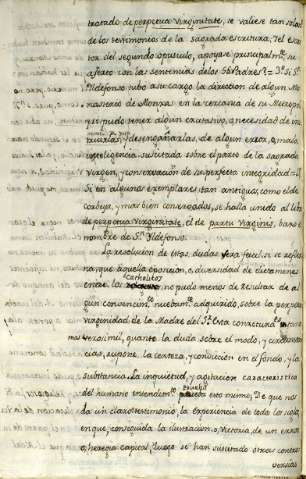 tratado de perpetua Virginitate, se valiese tan solo
de los testimonios de la sagrada escritura, y el es
tor del segundo opusculo, apoyase principalmte. su
aserto con las sentencias de los Stos Padres? = 3º Si Sn
Yldefonso tubo a su cargo la direccion de algun Mo
nasterio de Monjas en la cercania de su Metropo
y se pudo temer algun extravio, o necesidad de ins
truirlas, y desengañarlas, de algun error, o mala
inteligencia suscitada sobre el parto de la sagrada
Virgen, y conservacion de su perfecta integridad =
Si en algunos exemplares tan antiguos, como el de
Corbeya, y mas bien conservados, se halla unido al libro
de perpetua Virginitate, el de partu Virginis, baxo
nombre de Sn. Yldefonso.
La resolucion de estas dudas sera facil, si se reflex
na que aquella oposicion, o diversidad de dictamenes
entre los Catholicos no pudo menos de resultar de al
gun convencimto. nuebamte. adquirido, sobre la perpetua
virginidad de la Madre del Sr. Esta conjetura es tanto
mas verosimil, quanto la duda sobre el modo, y circunstan
cias, supone la certeza, y conviccion en el fondo, y la
substancia. La inquietud, y agitacion caracteristica
del humano entendimto. prueba esto mismo; De que nos
da un claro testimonio, la experiencia de todos los siglos
en que, conseguida la ilustracion, o Victoria, de un error
o heregia capital, luego se han suscitado otras contro
versias